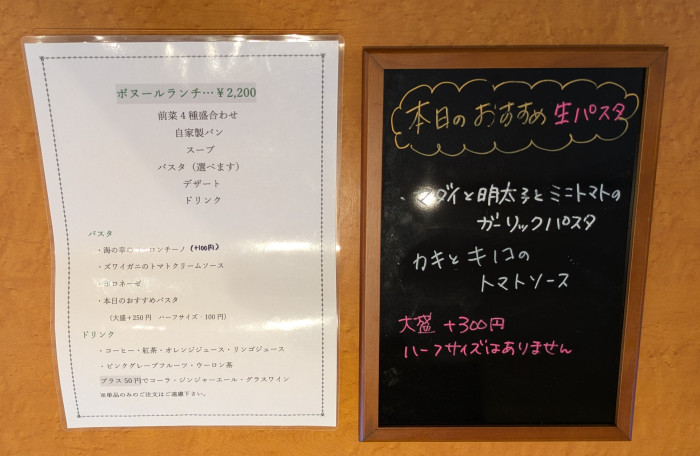 ボヌールランチ…￥2,200
前菜4種盛合わせ
自家製パン
スープ
パスタ（選べます）
デザート
ドリンク
パスタ
・海の幸の ロンチーノ（+100円）
・ズワイガニのトマトクリームソース
・ ロネーゼ
・本日のおすすめパスタ
（大盛+250円　ハーフサイズ・100円）
ドリンク
・コーヒー・紅茶・オレンジジュース・リンゴジュース
・ピンクグレープフルーツ・ウーロン茶
プラス50円でコーラ・ジンジャーエール・グラスワイン
※単品のみのご注文はご遠慮下さい。
本日のおすすめ 生パスタ
・マダイと明太子とミニトマトの
ガーリックパスタ
カキとキノコの
トマトソース
大盛 +300円
ハーフサイズはありません